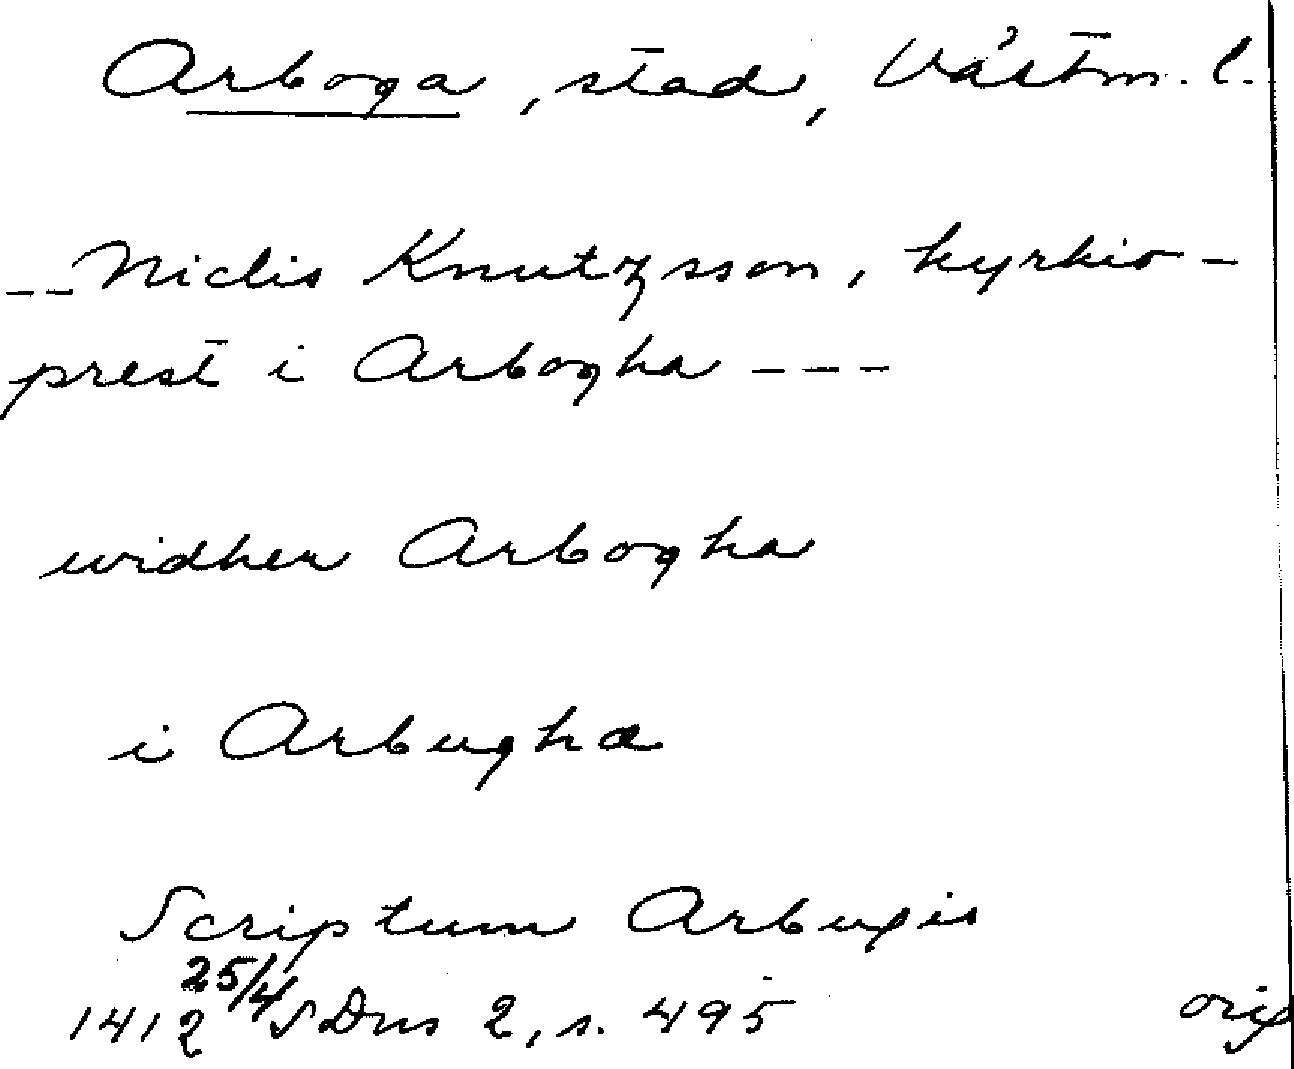 Arboga, stad, Västm. l.
-- Niclis Knutzsson, kyrkio-
prest i Arbogha ---
widher Arbogha
i Arbughæ
Scriptum Arbugis
1412 25/4 SDns 2, s. 495 orig